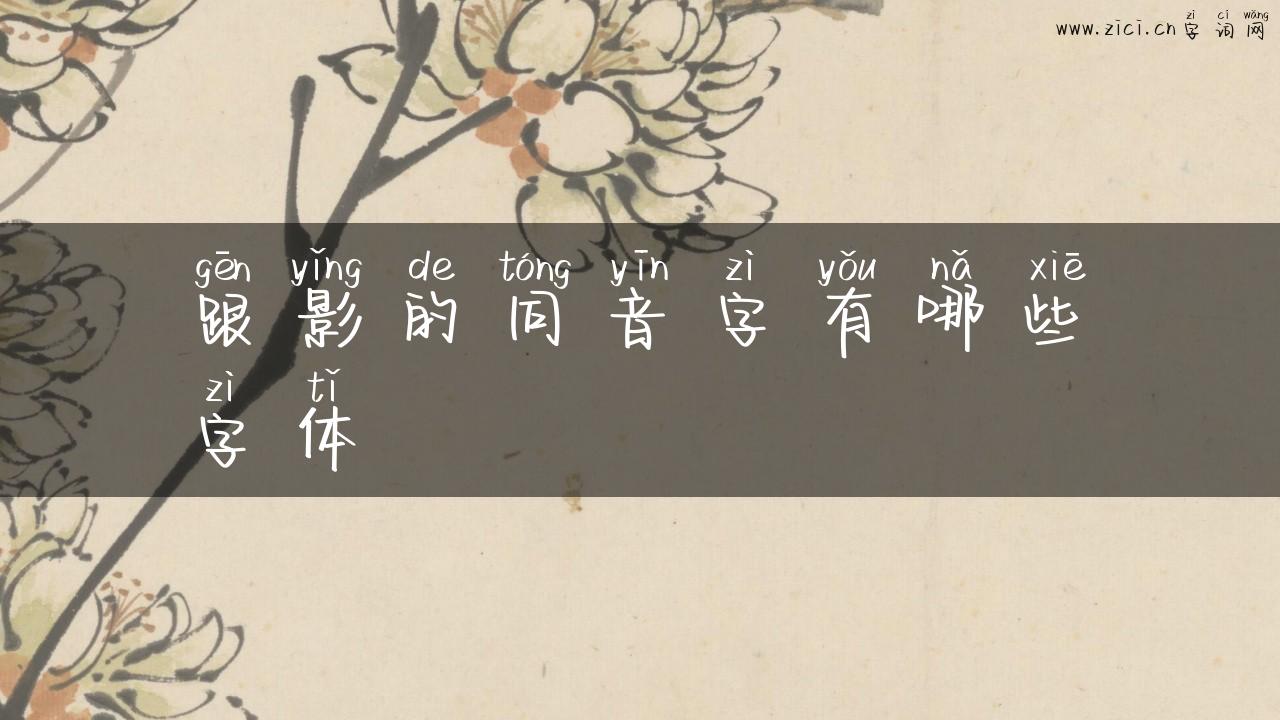 zì cí wǎng
www.zici.cn 字词网
gēn yǐng de tóng yīn zì yǒu nǎ xiē
跟影的同音字有哪些
zì tǐ
字体